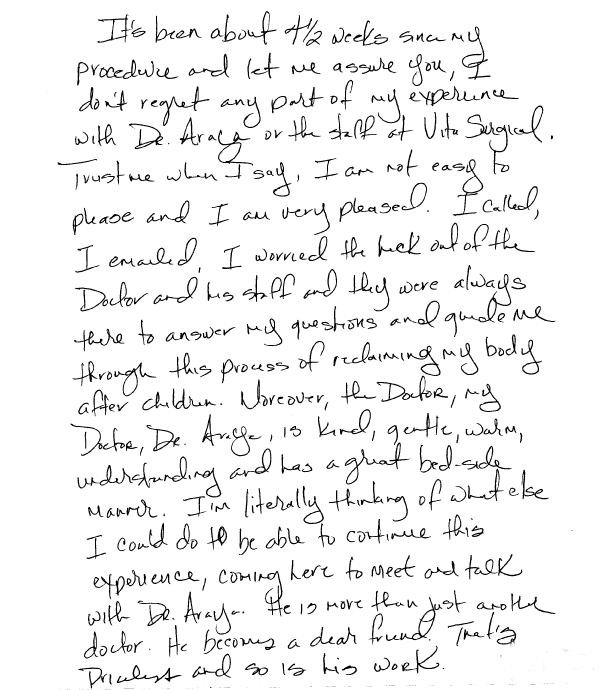 It's been about 4½ weeks since my
procedure and let me assure you, I
don't regret any part of my experience
with Dr. Araya or the staff at Vita Surgical.
Trust me when I say, I am not easy to
please and I am very pleased. I called,
I emailed, I worried the heck out of the
Doctor and his staff and they were always
there to answer my questions and guide me
through this process of reclaiming my body
after children. Moreover, the Doctor, my
Doctor, Dr. Araya, is kind, gentle, warm,
understanding and has a great bed-side
manner. I'm literally thinking of what else
I could do to be able to continue this
experience, coming here to meet and talk
with Dr. Araya. He is more than just another
doctor. He becomes a dear friend. That's
Priceless and so is his work.